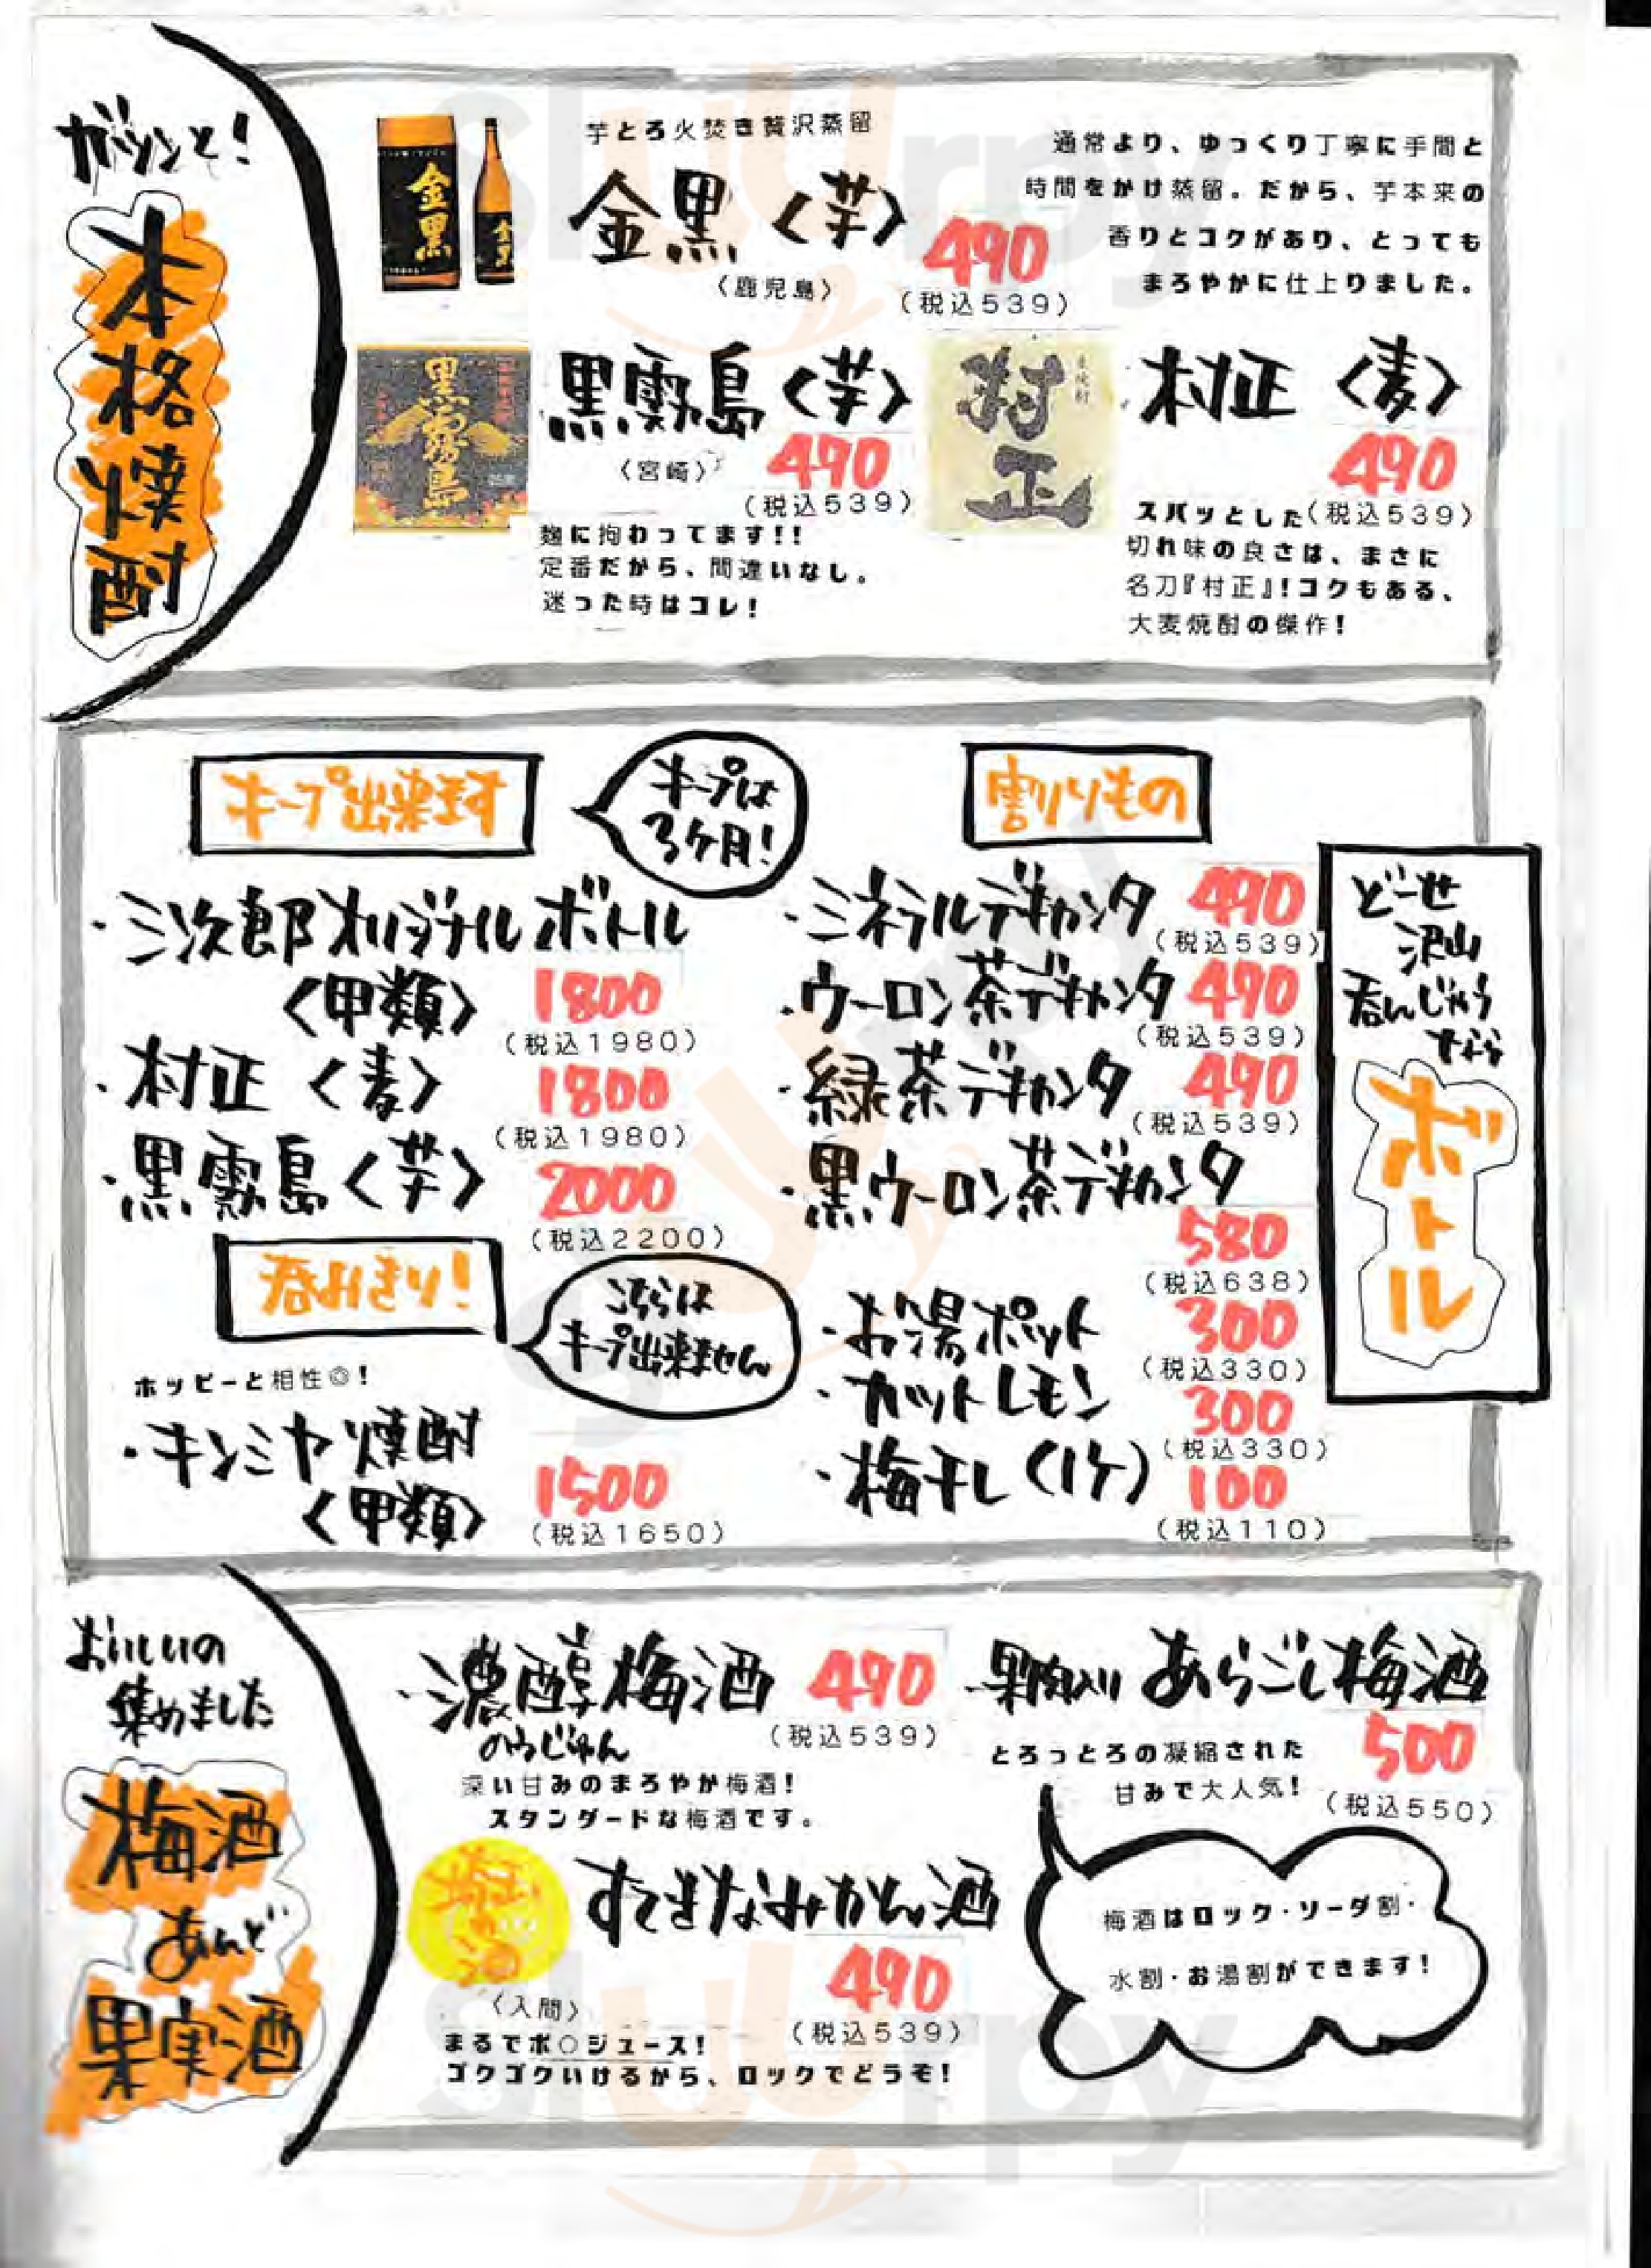 ガツンと!
本格焼酎
金黒
芋とろ火焚き贅沢蒸留
金黒〈芋〉
490
〈鹿児島〉
(税込539)
通常より、ゆっくり丁寧に手間と
時間をかけ蒸留。だから、芋本来の
香りとコクがあり、とっても
まろやかに仕上りました。
黒霧島
黒霧島〈芋〉
490
〈宮崎〉
(税込539)
麹に拘わってます!!
定番だから、間違いなし。
迷った時はコレ!
村正
村正〈麦〉
490
スパッとした(税込539)
切れ味の良さは、まさに
名刀『村正』!コクもある、
大麦焼酎の傑作!
キープ出来ます
キープは
3ヶ月!
・三次郎オリジナルボトル
〈甲類〉 1800
(税込1980)
・村正〈麦〉 1800
(税込1980)
・黒霧島〈芋〉 2000
(税込2200)
呑みきり!
こちらは
キープ出来ません
ホッピーと相性◎!
・キンミヤ焼酎
〈甲類〉 1500
(税込1650)
割りもの
・ミネラルデキャンタ 490
(税込539)
・ウーロン茶デキャンタ 490
(税込539)
・緑茶デキャンタ 490
(税込539)
・黒ウーロン茶デキャンタ
580
(税込638)
・お湯ポット 300
(税込330)
・カットレモン 300
(税込330)
・梅干し(1ケ) 100
(税込110)
どーせ
沢山
呑んじゃう
なら
ボトル
おいしいの
集めました
梅酒
あんど
果実酒
・濃醇梅酒 490
のうじゅん
(税込539)
深い甘みのまろやか梅酒!
スタンダードな梅酒です。
・果肉入り あらごし梅酒
500
とろっとろの凝縮された
甘みで大人気!
(税込550)
すてきなみかん酒
490
〈入間〉
(税込539)
まるでポ○ジュース!
ゴクゴクいけるから、ロックでどうぞ!
梅酒はロック・ソーダ割・
水割・お湯割ができます!
slurrpy
slurrpy
slurrpy